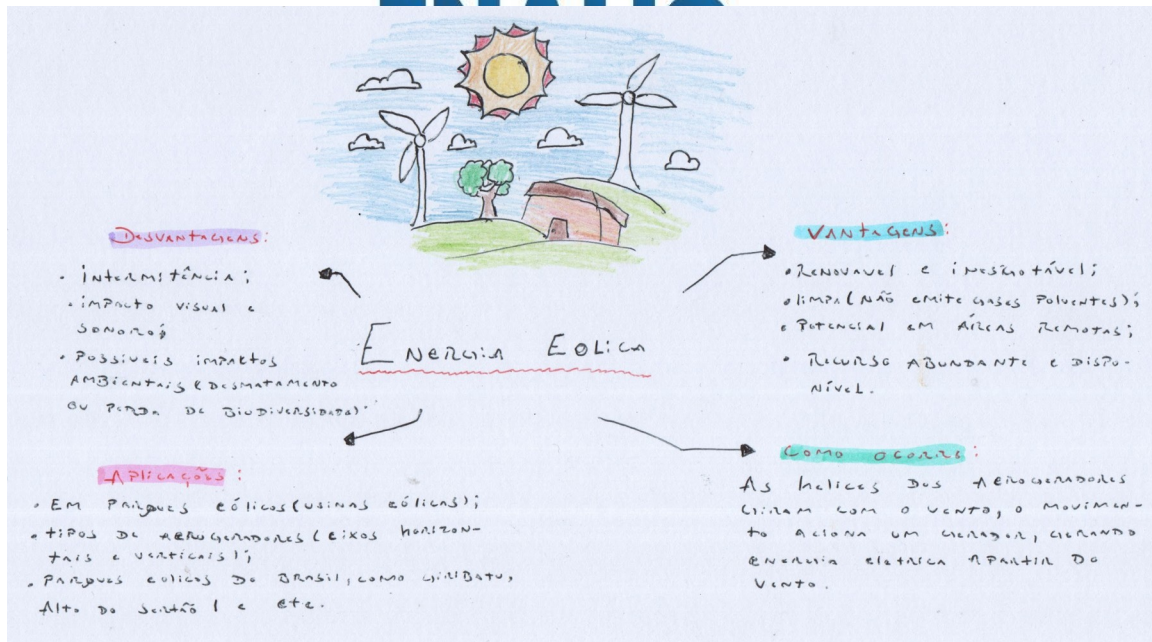 Desvantagens:
• intermitência;
• impacto visual e
sonoro;
• possíveis impactos
ambientais (desmatamento
ou perda de biodiversidade).
Energia Eolica
Vantagens:
• Renovavel e inesgotável;
• limpa (não emite gases poluentes);
• Potencial em áreas remotas;
• Recurso abundante e dispo-
nível.
Aplicações:
• Em parques eólicos (usinas eólicas);
• tipos de aerogeradores (eixos horizon-
tais e verticais);
• Parques eolicos do Brasil, como Giribatu,
Alto do Sertão I e etc.
Como ocorre:
As helices dos aerogeradores
giram com o vento, o movimen-
to aciona um gerador, gerando
energia eletrica apartir do
vento.